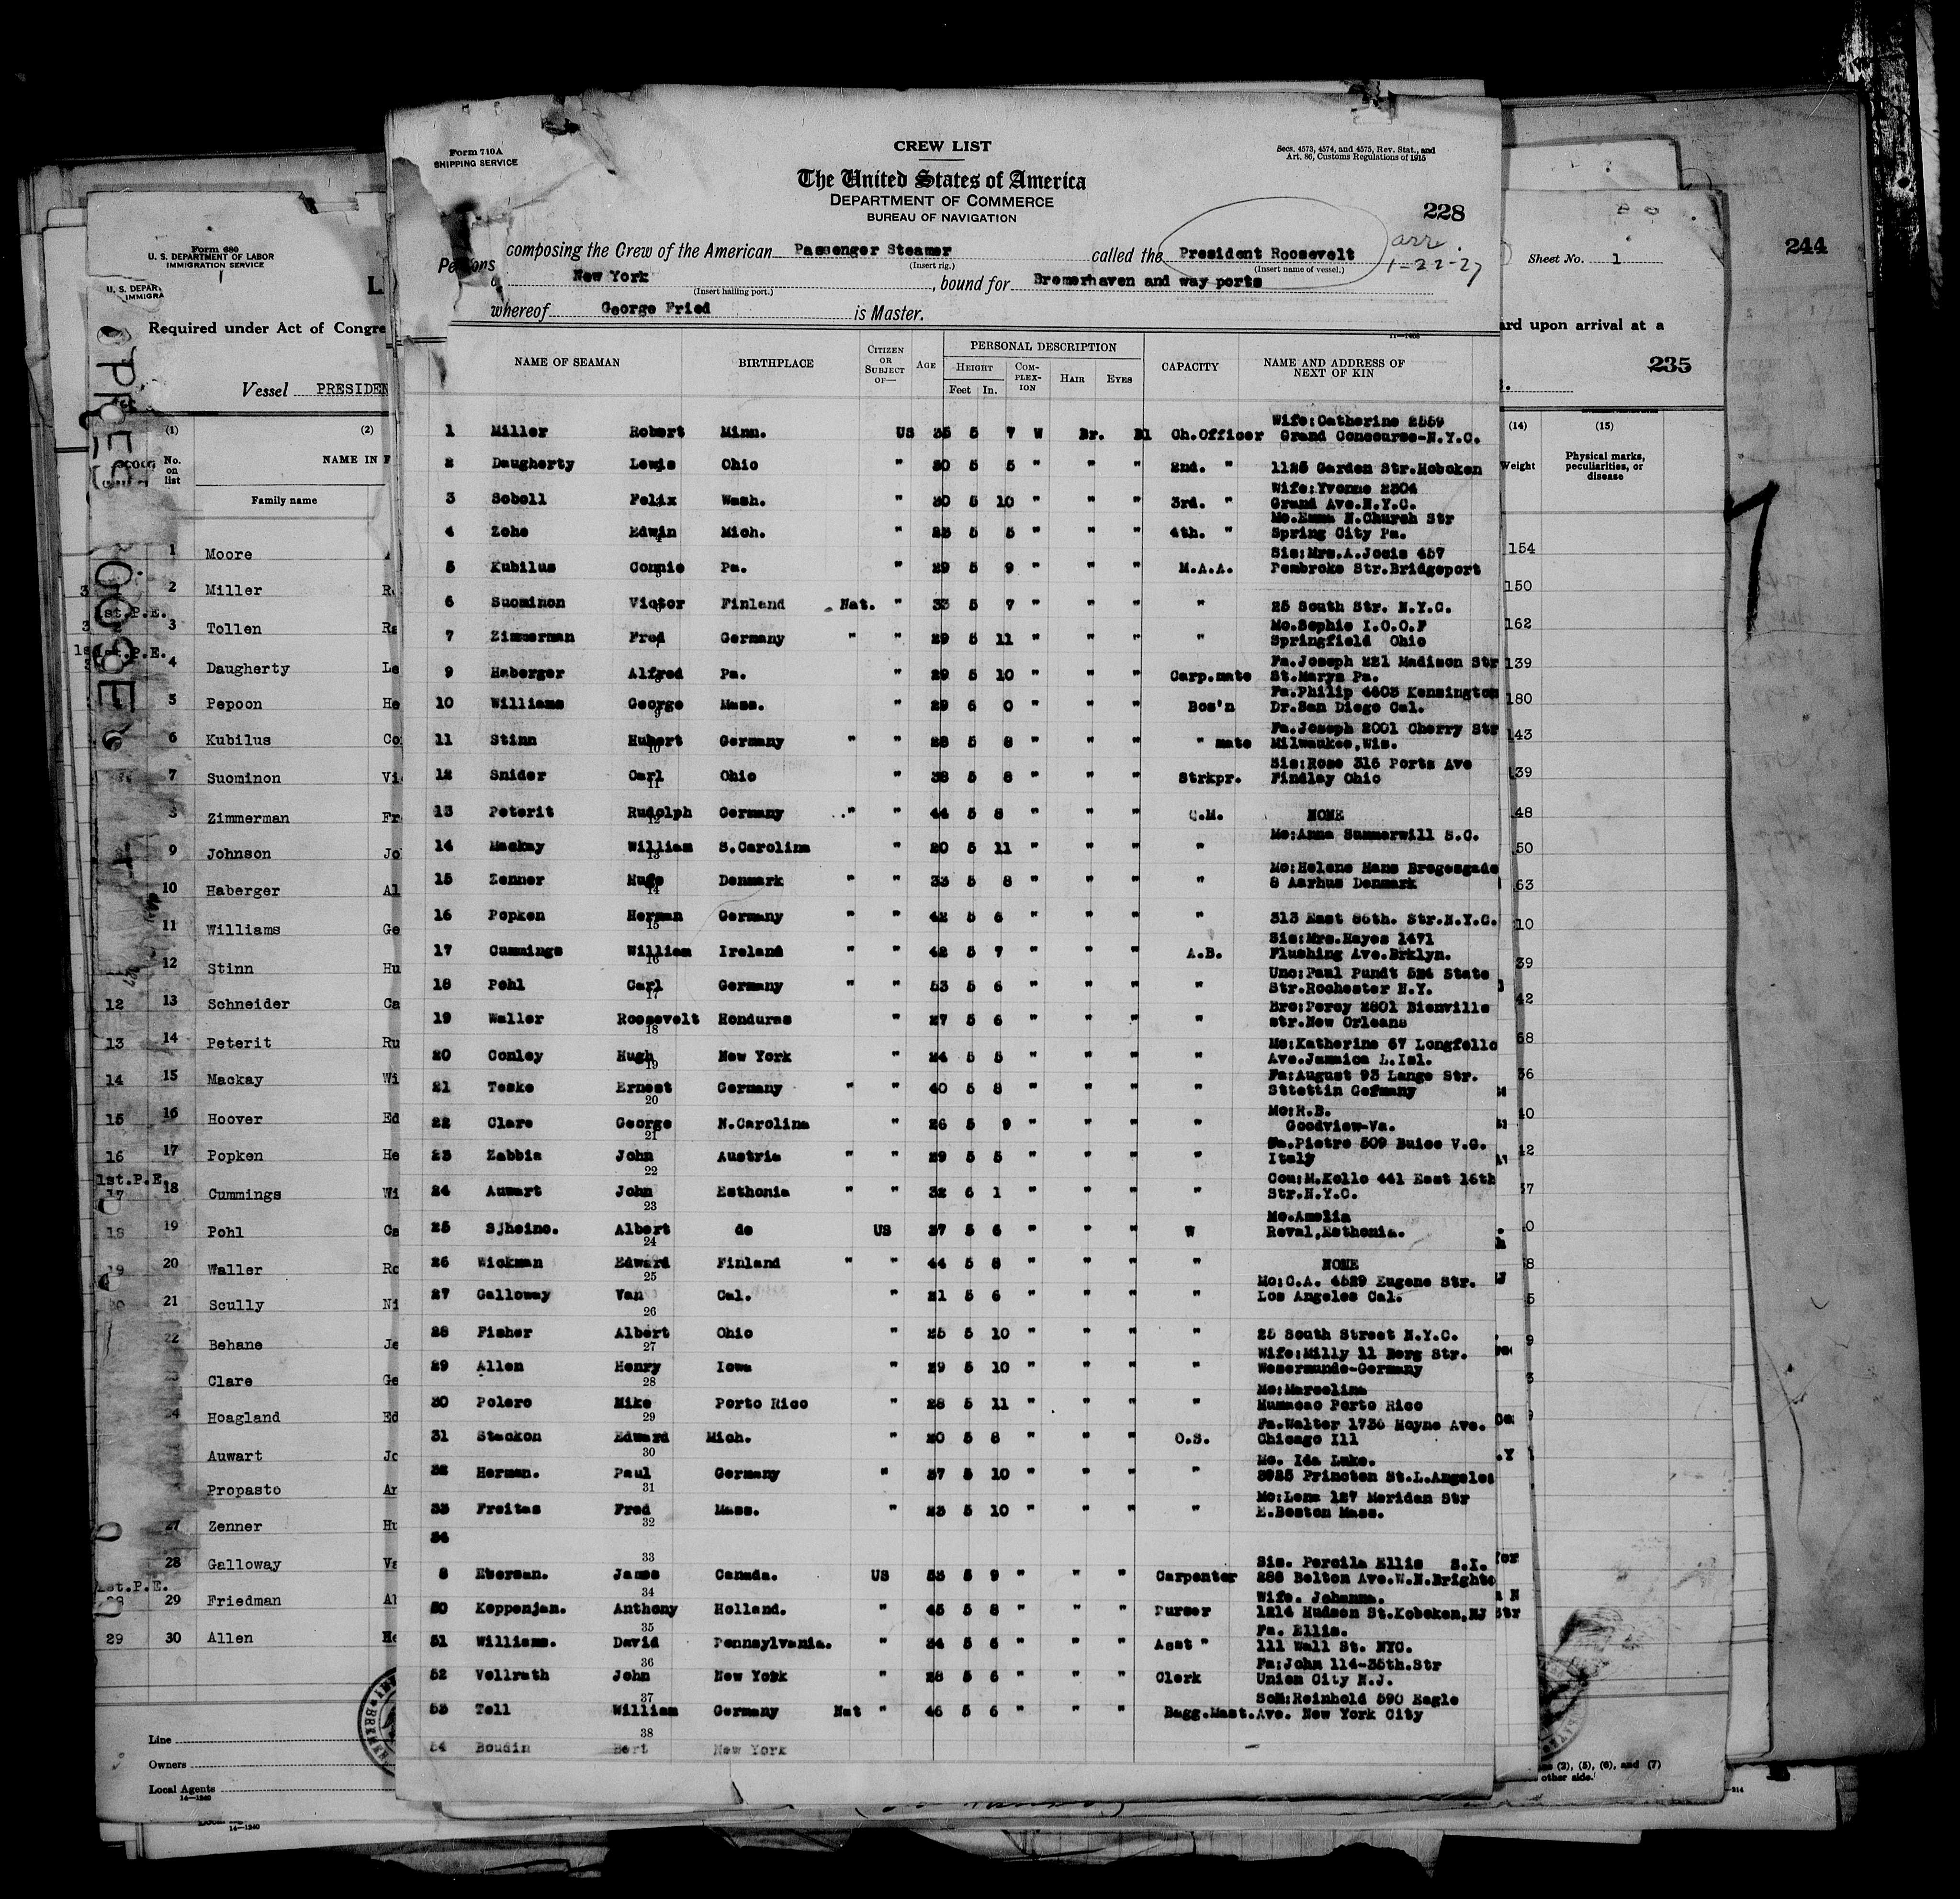 Form 710A
SHIPPING SERVICE
CREW LIST
Secs. 4573, 4574, and 4575, Rev. Stat., and
Art. 86, Customs Regulations of 1915
The United States of America
DEPARTMENT OF COMMERCE
BUREAU OF NAVIGATION
228
composing the Crew of the American Passenger Steamer called the President Roosevelt
arr. 1-22-27
(Insert rig.) (Insert name of vessel.)
Persons
New York, bound for Bremerhaven and way ports
(Insert hailing port.)
whereof George Fried is Master.
11-1406
NAME OF SEAMAN BIRTHPLACE CITIZEN OR SUBJECT OF— AGE PERSONAL DESCRIPTION CAPACITY NAME AND ADDRESS OF NEXT OF KIN
HEIGHT COM-PLEX-ION HAIR EYES
Feet In.
Wife:Catherine 2559
1 Miller Robert Minn. US 35 5 7 W Br. Bl Ch.Officer Grand Concourse-N.Y.C.
2 Daugherty Lewis Ohio " 30 5 5 " " " 2nd. " 1125 Garden Str.Hoboken
Wife:Yvonne 2304
3 Soboll Felix Wash. " 30 5 10 " " " 3rd. " Grand Ave.N.Y.C.
Mo.Emma N.Church Str
4 Zohe Edwin Mich. " 23 5 5 " " " 4th. " Spring City Pa.
Sis:Mrs.A.Jocis 457
5 Kubilus Connie Pa. " 29 5 9 " " " M.A.A. Pembroke Str.Bridgeport
6 Suominon Victor Finland Nat. " 33 5 7 " " " " 25 South Str. N.Y.C.
Mo.Sophie I.O.O.F
7 Zimmerman Fred Germany " " 29 5 11 " " " " Springfield Ohio
Fa.Joseph 221 Madison Str
9 Haberger Alfred Pa. " 29 5 10 " " " Carp.mate St.Marys Pa.
Fa.Philip 4603 Kensington
10 Williams George Mass. " 29 6 0 " " " Bos'n Dr.San Diego Cal.
Fa.Joseph 2001 Cherry Str
11 Stinn Hubert Germany " " 28 5 8 " " " " mate Milwaukee,Wis.
Sis:Rose 316 Ports Ave
12 Snider Carl Ohio " 38 5 8 " " " Strkpr. Findlay Ohio
13 Peterit Rudolph Germany " " 44 5 8 " " " Q.M. NONE
Mo:Anna Summerwill S.C.
14 Mackay William S.Carolina " 20 5 11 " " " "
Mo:Helene Hans Brogesgade
15 Zenner Hugo Denmark " " 33 5 8 " " " " 8 Aarhus Denmark
16 Popken Herman Germany " " 42 5 6 " " " " 313 East 86th. Str.N.Y.C.
Sis:Mrs.Hayes 1471
17 Cummings William Ireland " " 42 5 7 " " " A.B. Flushing Ave.Brklyn.
Unc:Paul Pundt 524 State
18 Pohl Carl Germany " " 53 5 6 " " " " Str.Rochester N.Y.
Bro:Percy 2801 Bienville
19 Waller Roosevelt Honduras " 27 5 6 " " " " str.New Orleans
Mo:Katherine 67 Longfello
20 Conley Hugh New York " 24 5 5 " " " " Ave.Jamaica L.Isl.
Fa:August 93 Lange Str.
21 Teske Ernest Germany " " 40 5 8 " " " " Sttettin Germany
Mo:R.B.
22 Clare George N.Carolina " 26 5 9 " " " " Goodview-Va.
Fa.Pietro 509 Buice V.G.
23 Zabbia John Austria " " 29 5 5 " " " " Italy
Cou:M.Kello 441 East 16th
24 Auwart John Esthonia " " 32 6 1 " " " " Str.N.Y.C.
Mo.Amelia
25 Sjheino. Albert do US 37 5 6 " " " W Reval,Esthonia.
26 Wickman Edward Finland " " 44 5 8 " " " " NONE
Mo:C.A. 4529 Eugene Str.
27 Galloway Van Cal. " 21 5 6 " " " " Los Angeles Cal.
28 Fisher Albert Ohio " 25 5 10 " " " " 25 South Street N.Y.C.
Wife:Milly 11 Berg Str.
29 Allen Henry Iowa " 29 5 10 " " " " Wesermunde-Germany
Mo:Marcelina
30 Polero Mike Porto Rico " 28 5 11 " " " " Mumacao Porto Rico
Fa.Walter 1736 Moyne Ave.
31 Stackon Edward Mich. " 20 5 8 " " " O.S. Chicago Ill
Mo. Ida Luke.
32 Herman. Paul Germany " 37 5 10 " " " " 3925 Princton St.L.Angeles
Mo:Lena 127 Meridan Str
33 Freitas Fred Mass. " 23 5 10 " " " " E.Boston Mass.
34
Sis. Percila Ellis S.I.
8 Eberson. James Canada. US 53 5 9 " " " Carpenter 288 Belton Ave.W.N.Brighto
Wife. Johanna.
50 Koppenjan. Anthony Holland. " 45 5 8 " " " Purser 1214 Hudson St.Hoboken,NJ
Fa. Ellis.
51 Williams. David Pennsylvania. " 24 5 6 " " " Asst " 111 Wall St. NYC.
Fa:John 114-35th.Str
52 Vollrath John New York " 28 5 6 " " " Clerk Union City N.J.
Son:Reinhold 590 Eagle
53 Toll William Germany Nat " 46 5 6 " " " Bagg.Mast. Ave. New York City
54 Boudin Bert New York
Form 680
U. S. DEPARTMENT OF LABOR
IMMIGRATION SERVICE
Required under Act of Congre
Vessel PRESIDEN
(1) (2)
No. on list NAME IN F
Family name
1 Moore
2 Miller
3 Tollen
4 Daugherty
5 Pepoon
6 Kubilus
7 Suominon
Zimmerman
9 Johnson
10 Haberger
11 Williams
12 Stinn
12 13 Schneider
13 14 Peterit
14 15 Mackay
15 16 Hoover
16 17 Popken
1st.P.E.
17 18 Cummings
19 Pohl
20 Waller
21 Scully
22 Behane
Clare
Hoagland
Auwart
Propasto
27 Zenner
28 Galloway
29 Friedman
29 30 Allen
Line
Owners
Local Agents
14-1240
244
Sheet No. 1
ard upon arrival at a
235
(14) (15)
Weight Physical marks, peculiarities, or disease
154
150
162
139
180
143
139
(2), (5), (6), and (7)
other side.